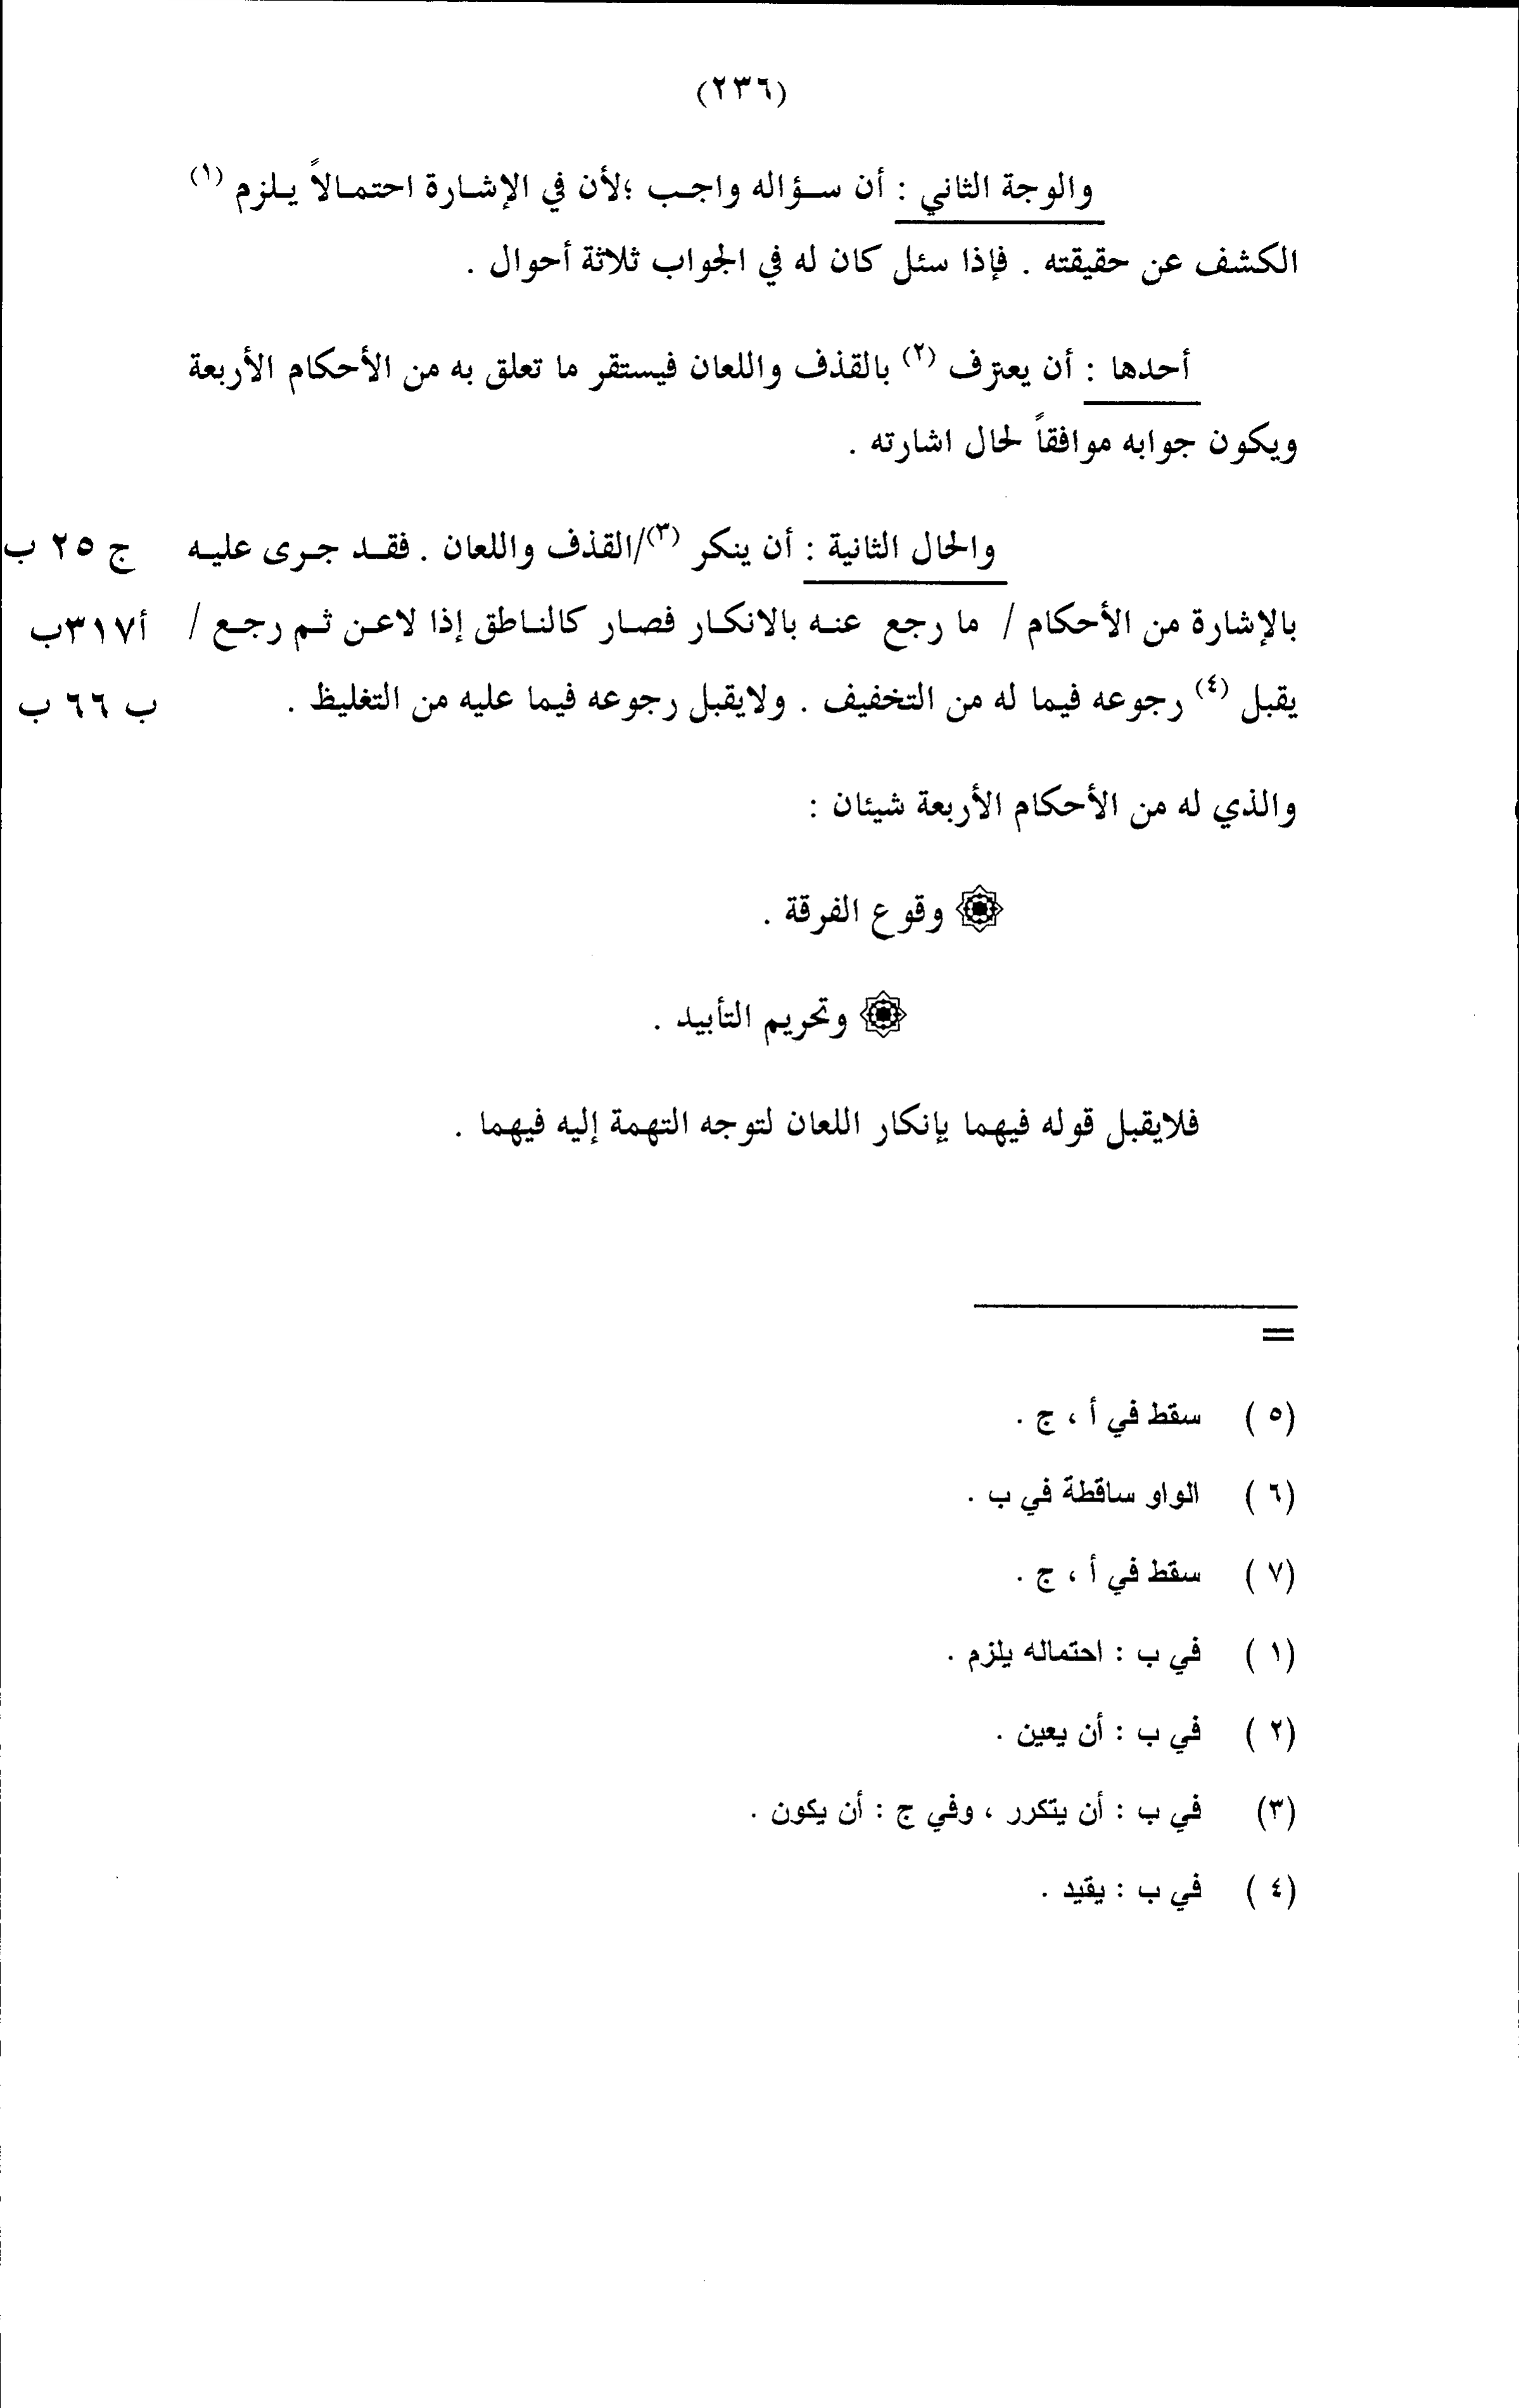 (٢٣٦)
والوجة الثاني : أن سـؤاله واجـب ؛لأن في الإشـارة احتمـالاً يـلزم (١)
الكشف عن حقيقته . فإذا سئل كان له في الجواب ثلاثة أحوال .
أحدها : أن يعترف (٢) بالقذف واللعان فيستقر ما تعلق به من الأحكام الأربعة
ويكون جوابه موافقاً لحال اشارته .
والحال الثانية : أن ينكر (٣)/القذف واللعان . فقـد جـرى عليـه ج ٢٥ ب
بالإشارة من الأحكام / ما رجع عنـه بالانكـار فصـار كالنـاطق إذا لاعـن ثـم رجـع / أ٣١٧ب
يقبل (٤) رجوعه فيما له من التخفيف . ولايقبل رجوعه فيما عليه من التغليظ . ب ٦٦ ب
والذي له من الأحكام الأربعة شيئان :
وقوع الفرقة .
وتحريم التأبيد .
فلايقبل قوله فيهما بإنكار اللعان لتوجه التهمة إليه فيهما .
=
(٥ ) سقط في أ ، ج .
(٦ ) الواو ساقطة في ب .
(٧ ) سقط في أ ، ج .
(١ ) في ب : احتماله يلزم .
(٢ ) في ب : أن يعين .
(٣) في ب : أن يتكرر ، وفي ج : أن يكون .
(٤ ) في ب : يقيد .